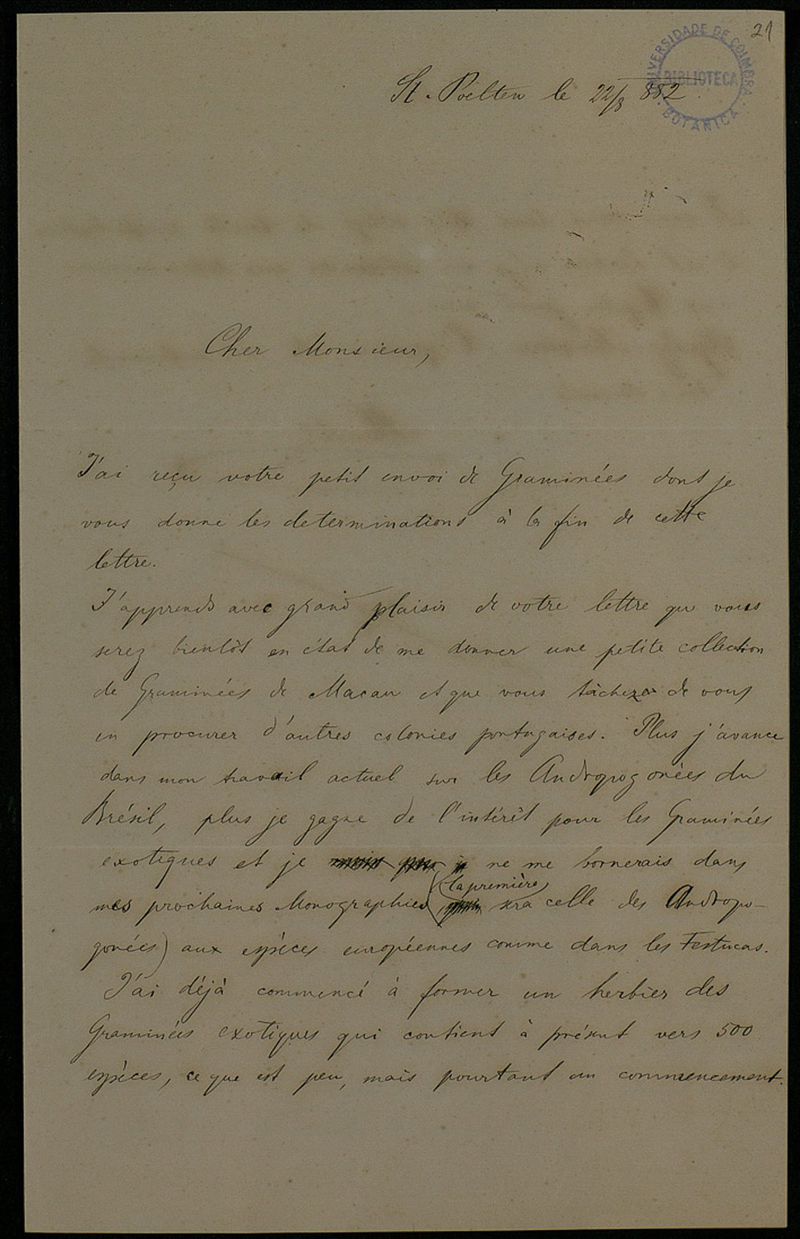 21
UNIVERSIDADE DE COIMBRA
BIBLIOTECA
BOTANICA
St. Poelten le 22/8 882
Cher Monsieur,
J'ai reçu votre petit envoi de Graminées dont je
vous donne les determinations à la fin de cette
lettre.
J'apprends avec grand plaisir de votre lettre que vous
serez bientôt en état de me donner une petite collection
de Graminées de Macau et que vous tâchez de vous
en procurer d'autres colonies portugaises. Plus j'avance
dans mon travail actuel sur les Andropogonées du
Brésil, plus je gagne de l'intérêt pour les Graminées
exotiques et je ne me bornerais dans
mes prochaines Monographies (la première sera celle des Andropo-
gonées) aux espèces européennes comme dans les Festucas.
J'ai déjà commencé à former un herbier des
Graminées exotiques qui contient à présent vers 500
espèces, ce que est peu, mais pourtant un commencement.